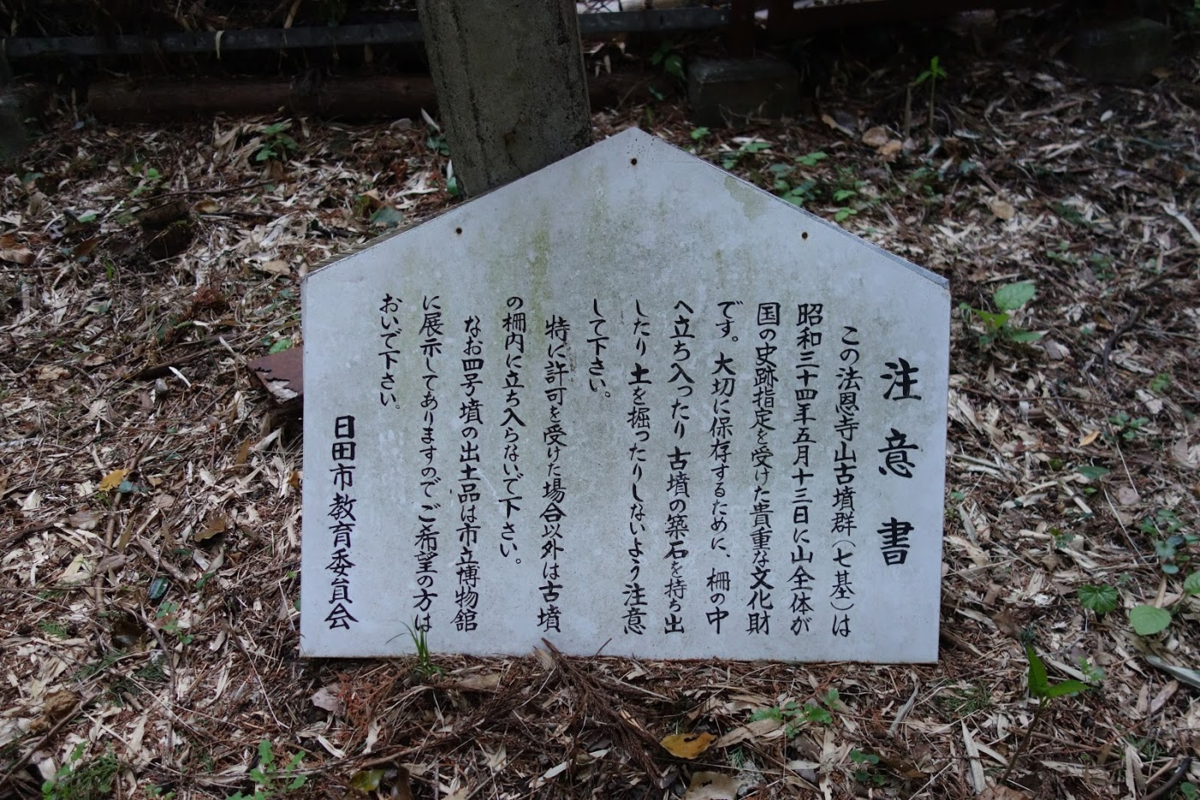 注意書
この法恩寺山古墳群（七基）は
昭和三十四年五月十三日に山全体が
国の史跡指定を受けた貴重な文化財
です。大切に保存するために、柵の中
へ立ち入ったり古墳の築石を持ち出
したり土を掘ったりしないよう注意
して下さい。
特に許可を受けた場合以外は古墳
の柵内に立ち入らないで下さい。
なお四号墳の出土品は市立博物館
に展示してありますので、ご希望の方は
おいで下さい。
日田市教育委員会